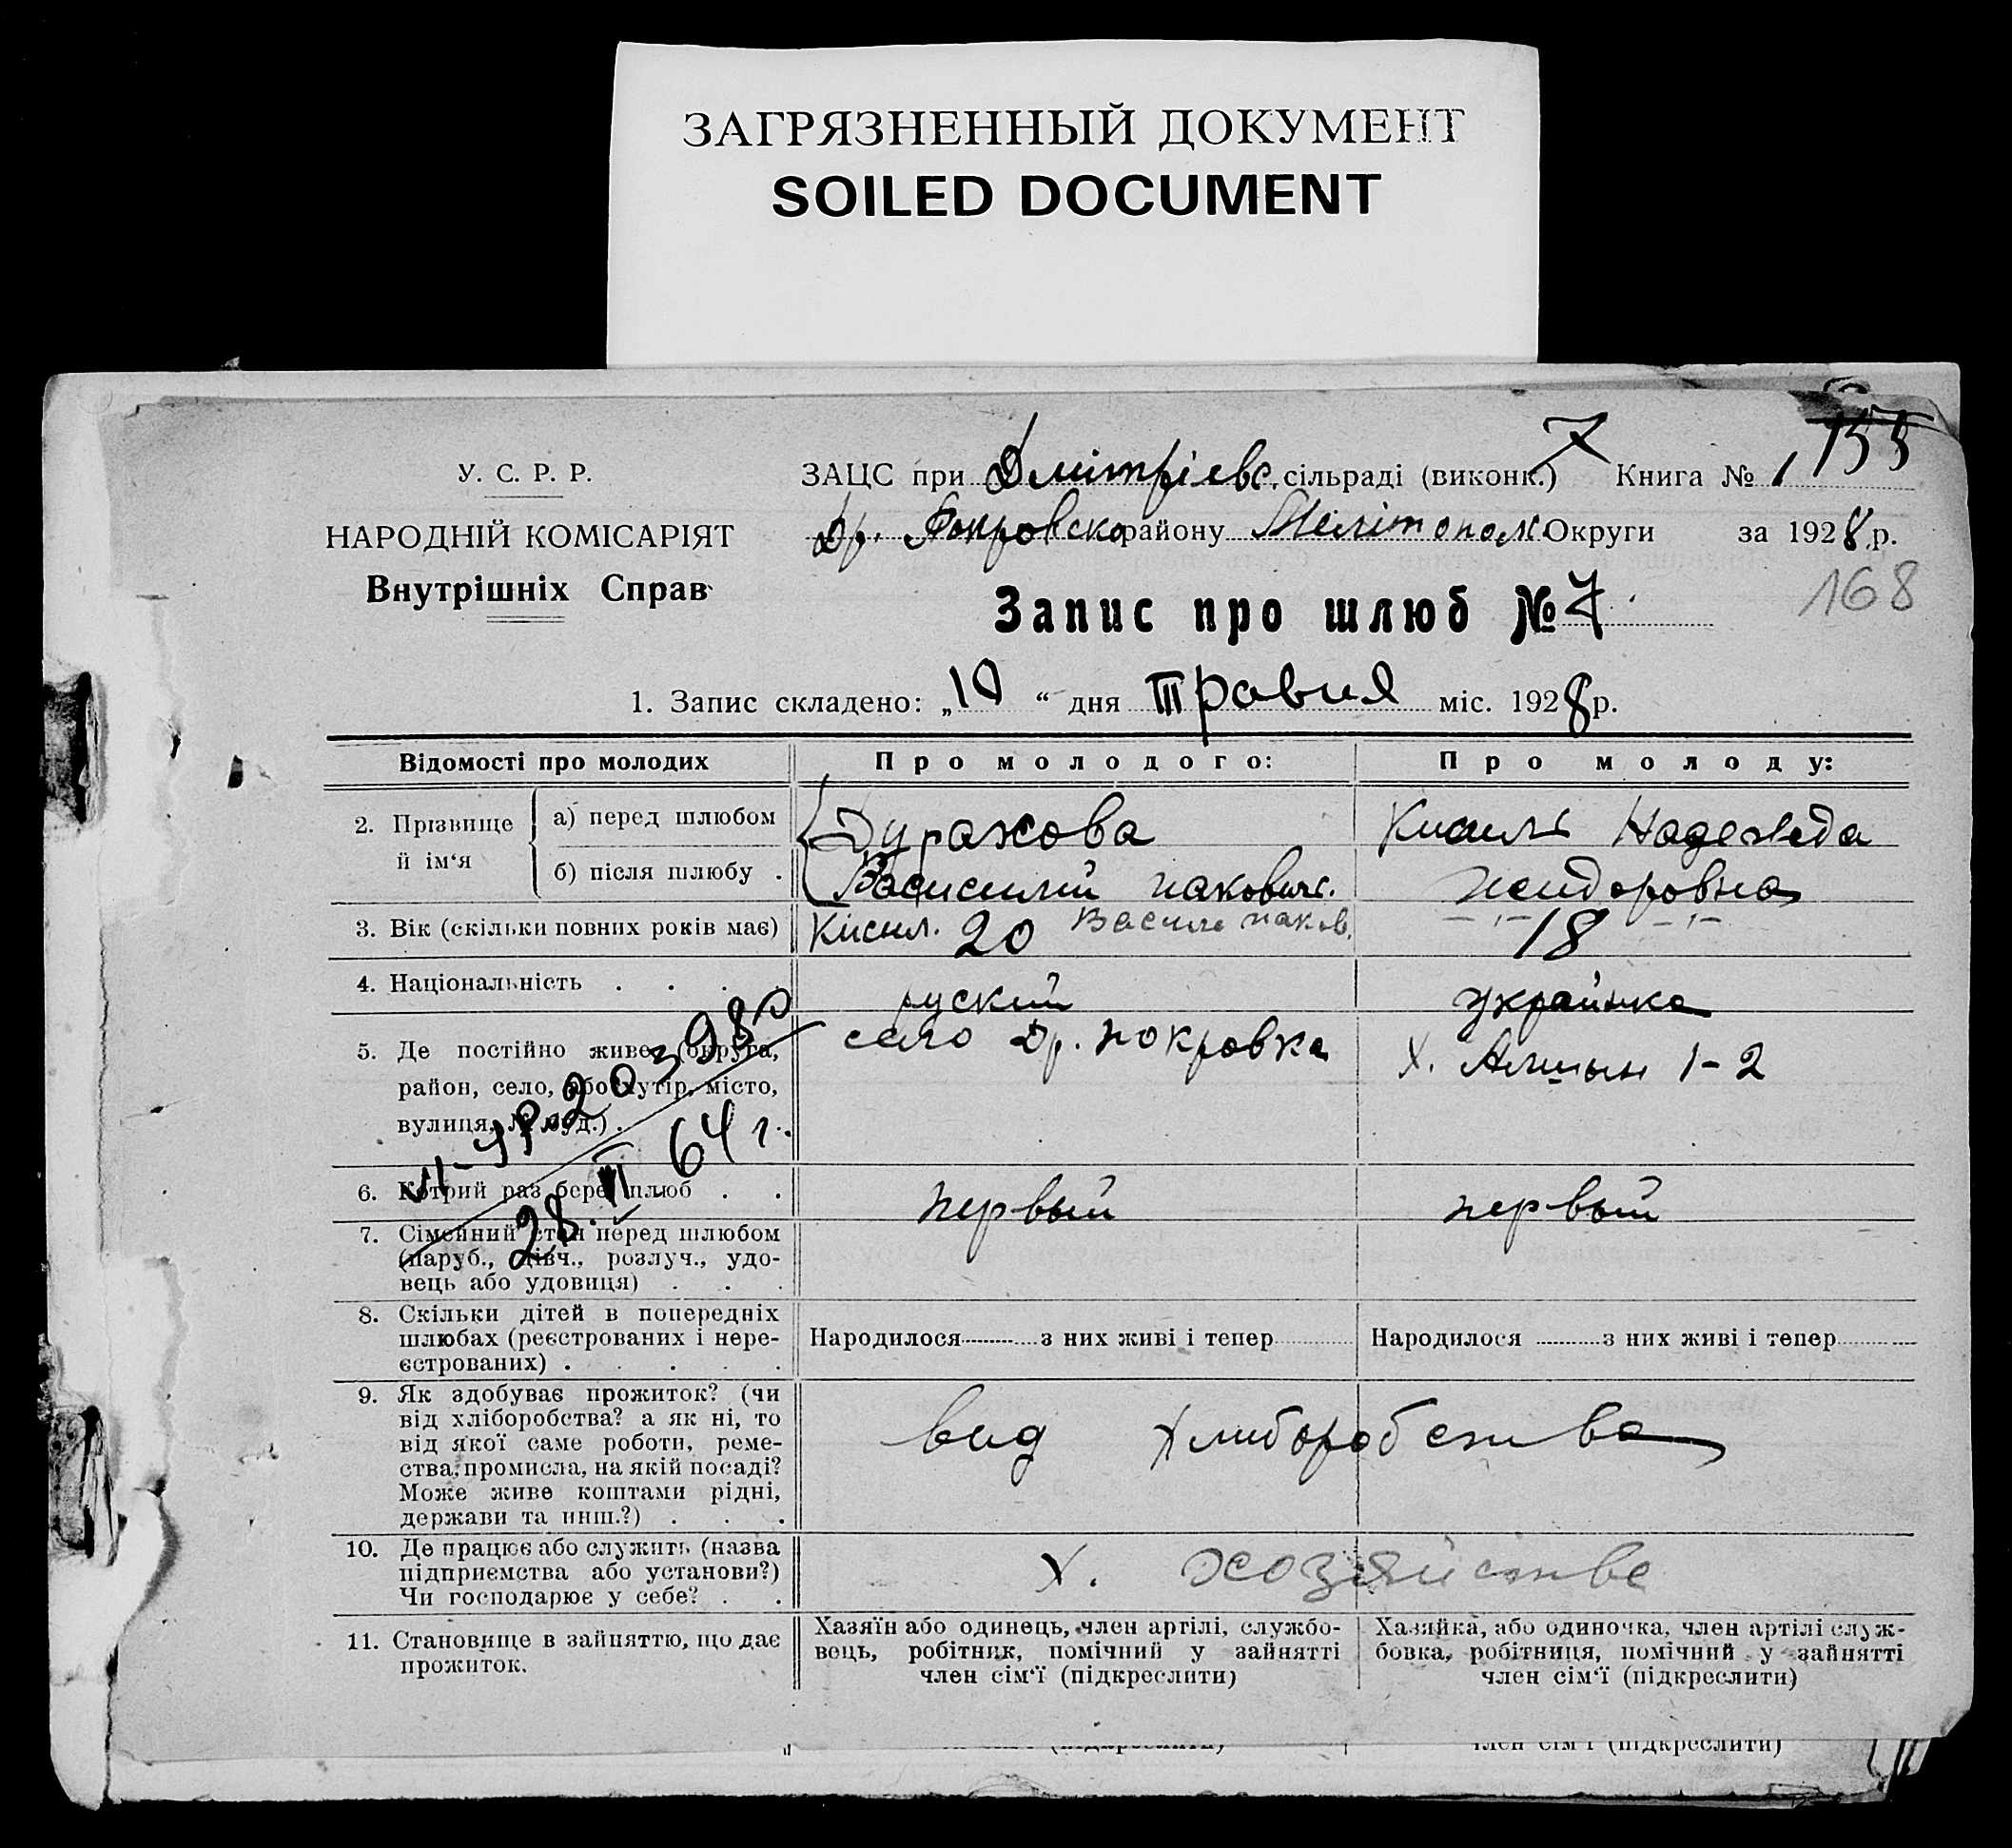 ЗАГРЯЗНЕННЫЙ ДОКУМЕНТ
SOILED DOCUMENT
155
7
У. С. Р. Р.
ЗАЦС при Дмітрієвс. сільраді (виконк.) Книга № 1
НАРОДНІЙ КОМІСАРІЯТ
Др. Покровско району Мелітопол. Округи за 1928 р.
Внутрішніх Справ
168
Запис про шлюб № 7
1. Запис складено: „10“ дня травня міс. 1928 р.
Відомості про молодих
Про молодого:
Про молоду:
2. Прізвище й ім‘я
а) перед шлюбом
б) після шлюбу .
Дуракова
Василий
Надежда
3. Вік (скільки повних років має)
Кисил. 20
18
4. Національність . . . .
руский
украинка
5. Де постійно живе (округа,
район, село, або хутір, місто,
вулиця, № буд.) .
село Др. Покровка
х. 1-2
203980
28. 64 г.
6. Котрий раз бере шлюб . .
первый
первый
7. Сімейний стан перед шлюбом
(паруб., дівч., розлуч., удо-
вець або удовиця) . . .
8. Скільки дітей в попередніх
шлюбах (реєстрованих і нере-
єстрованих) . . . . .
Народилося з них живі і тепер
Народилося з них живі і тепер
9. Як здобуває прожиток? (чи
від хліборобства? а як ні, то
від якої саме роботи, реме-
ства, промисла, на якій посаді?
Може живе коштами рідні,
держави та инш.?) . . .
вид хлиборобства
10. Де працює або служить (назва
підприємства або установи?)
Чи господарює у себе? . .
х. хозяйстве
11. Становище в зайняттю, що дає
прожиток.
Хазяїн або одинець, член артілі, службо-
вець, робітник, помічний у зайнятті
член сім‘ї (підкреслити)
Хазяйка, або одиночка, член артілі служ-
бовка, робітниця, помічний у зайнятті
член сім‘ї (підкреслити)
член сім‘ї (підкреслити)